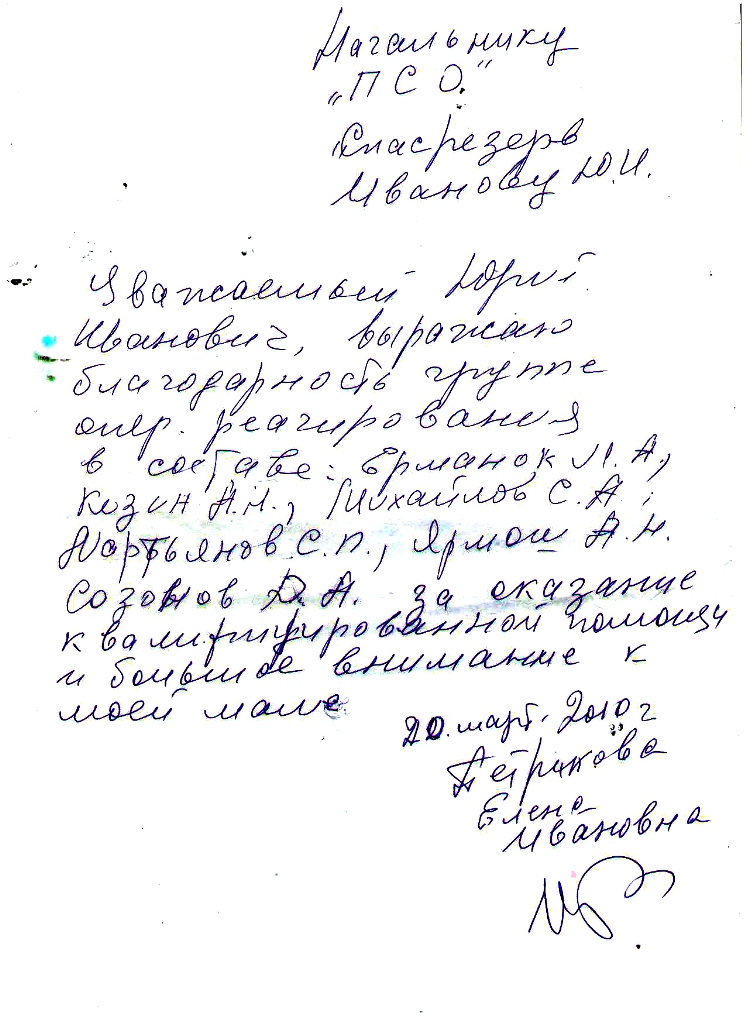 Начальнику
„ПСО."
„Спасрезерв
Иванову Ю.И.
Уважаемый Юрий
Иванович, выражаю
благодарность группе
опер. реагирования
в составе: Ерманок М.А,
Козин А.И., Михайлов С.А,
Мартьянов С.П., Ярмош А.Н.
Созонов Д.А. за оказание
квалифицированной помощи
и большое внимание к
моей маме
20. март. 2010 г
Петракова
Елена
Ивановна